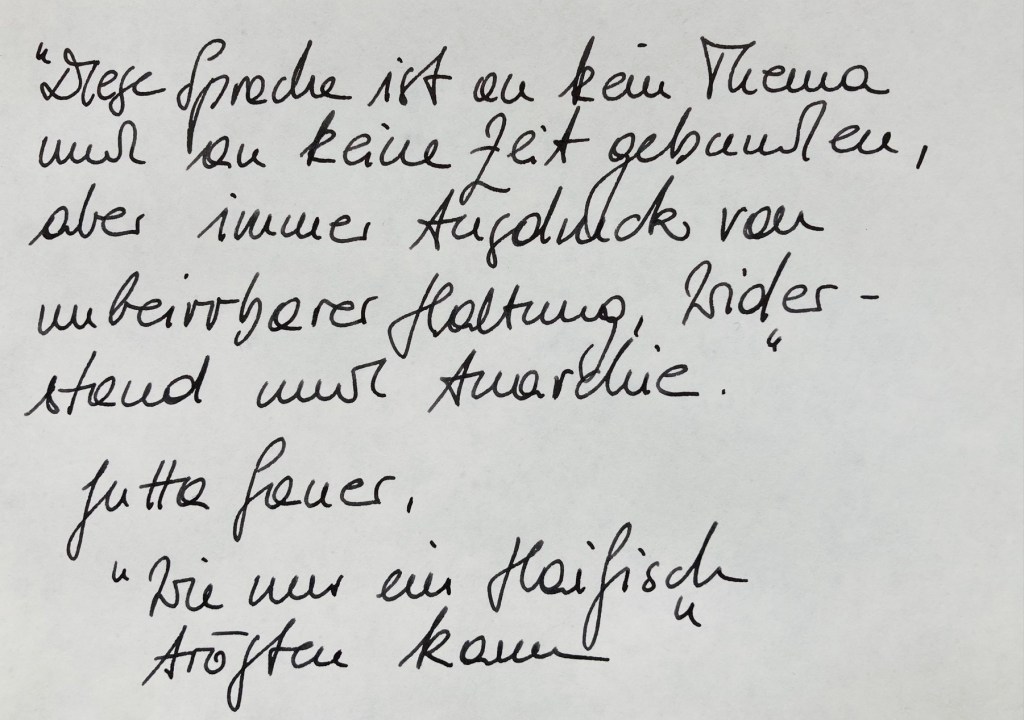 "Diese Sprache ist an kein Thema
und an keine Zeit gebunden,
aber immer Ausdruck von
unbeirrbarer Haltung, Wider-
stand und Anarchie."
Jutta Sauer,
"Wie nur ein Haifisch
trösten kann"